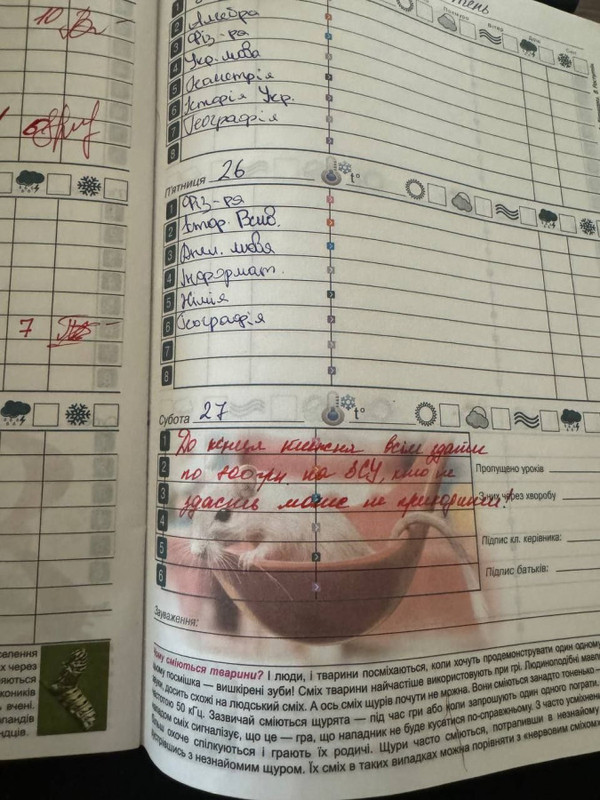 10
7
тень
2 Алгебра
3 Фіз-ра
4 Укр. мова
5 Геометрія
6 Історія Укр.
7 Географія
8
П'ятниця 26
t°
1 Фіз-ра
2 Істор. Всев.
3 Англ. мова
4 Інформат.
5 Хімія
6 Географія
7
8
Субота 27
t°
1 До кінця тижня всім здати
2 по 200грн на ЗСУ, хто не
3 здасть може не приходити!
4
5
6
Пропущено уроків
З них через хворобу
Підпис кл. керівника:
Підпис батьків:
Зауваження:
сміються тварини? І люди, і тварини посміхаються, коли хочуть продемонструвати один одному
посмішка — вишкірені зуби! Сміх тварини найчастіше використовують при грі. Людиноподібні мавпи
досить схожі на людський сміх. А ось сміх щурів почути не можна. Вони сміються занадто тоненько
частотою 50 кГц. Зазвичай сміються щурята — під час гри або коли запрошують один одного пограти.
сміх сигналізує, що це — гра, що нападник не буде кусатися по-справжньому. З часто усміхненими
охоче спілкуються і грають їх родичі. Щури часто сміються, потрапивши в незнайому
зустрівшись з незнайомим щуром. Їх сміх в таких випадках можна порівняти з «нервовим сміхом»